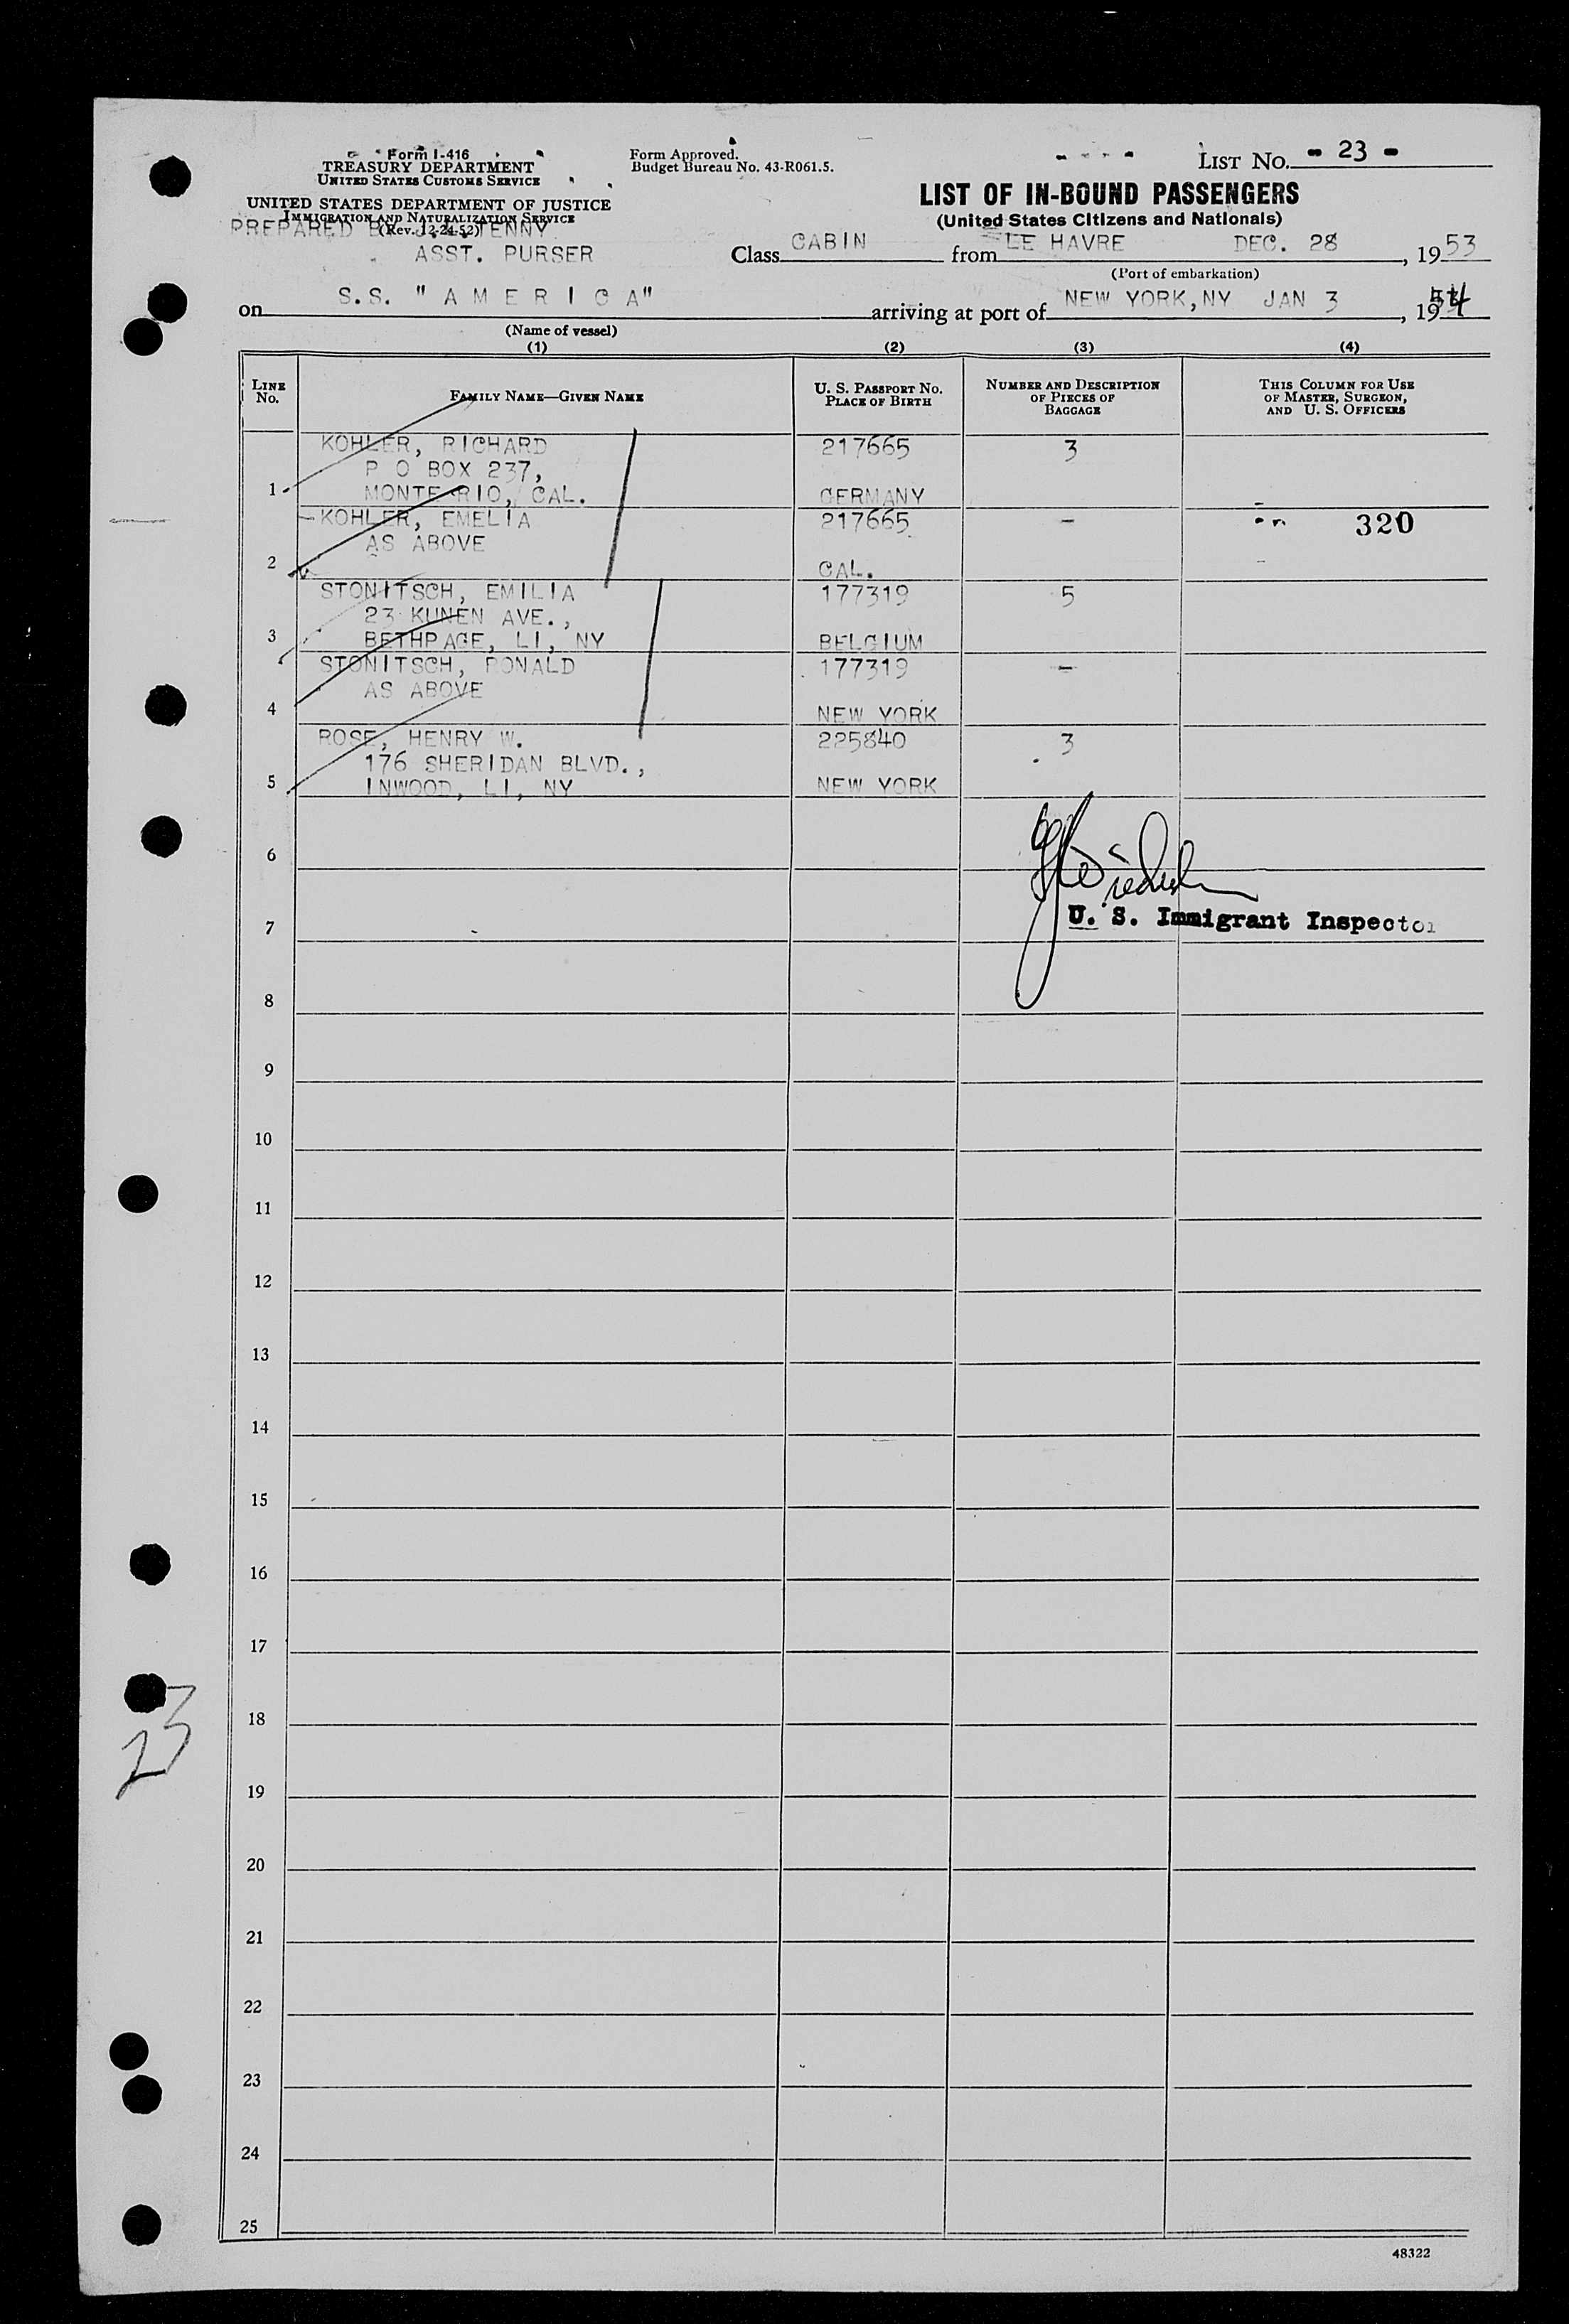 Form I-416
TREASURY DEPARTMENT
UNITED STATES CUSTOMS SERVICE
UNITED STATES DEPARTMENT OF JUSTICE
IMMIGRATION AND NATURALIZATION SERVICE
(Rev. 12-24-52)
PREPARED TENNY
ASST. PURSER
Form Approved.
Budget Bureau No. 43-R061.5.
LIST NO. - 23 -
LIST OF IN-BOUND PASSENGERS
(United States Citizens and Nationals)
Class CABIN from LE HAVRE DEC. 28, 1953
(Port of embarkation)
on S.S. "AMERICA" arriving at port of NEW YORK, NY JAN 3, 1954
(Name of vessel)
(1) (2) (3) (4)
LINE NO. FAMILY NAME—GIVEN NAME U. S. PASSPORT NO. PLACE OF BIRTH NUMBER AND DESCRIPTION OF PIECES OF BAGGAGE THIS COLUMN FOR USE OF MASTER, SURGEON, AND U. S. OFFICERS
KOHLER, RICHARD 217665 3
P O BOX 237,
1 MONTE RIO, CAL. GERMANY
KOHLER, EMELIA 217665 - 320
AS ABOVE
2 CAL.
STONITSCH, EMILIA 177319 5
23 KUNEN AVE.,
3 BETHPAGE, LI, NY BELGIUM
STONITSCH, RONALD 177319 -
AS ABOVE
4 NEW YORK
ROSE, HENRY W. 225840 3
176 SHERIDAN BLVD.,
5 INWOOD, LI, NY NEW YORK
6
U. S. Immigrant Inspector
7
8
9
10
11
12
13
14
15
16
17
23
18
19
20
21
22
23
24
25
48322